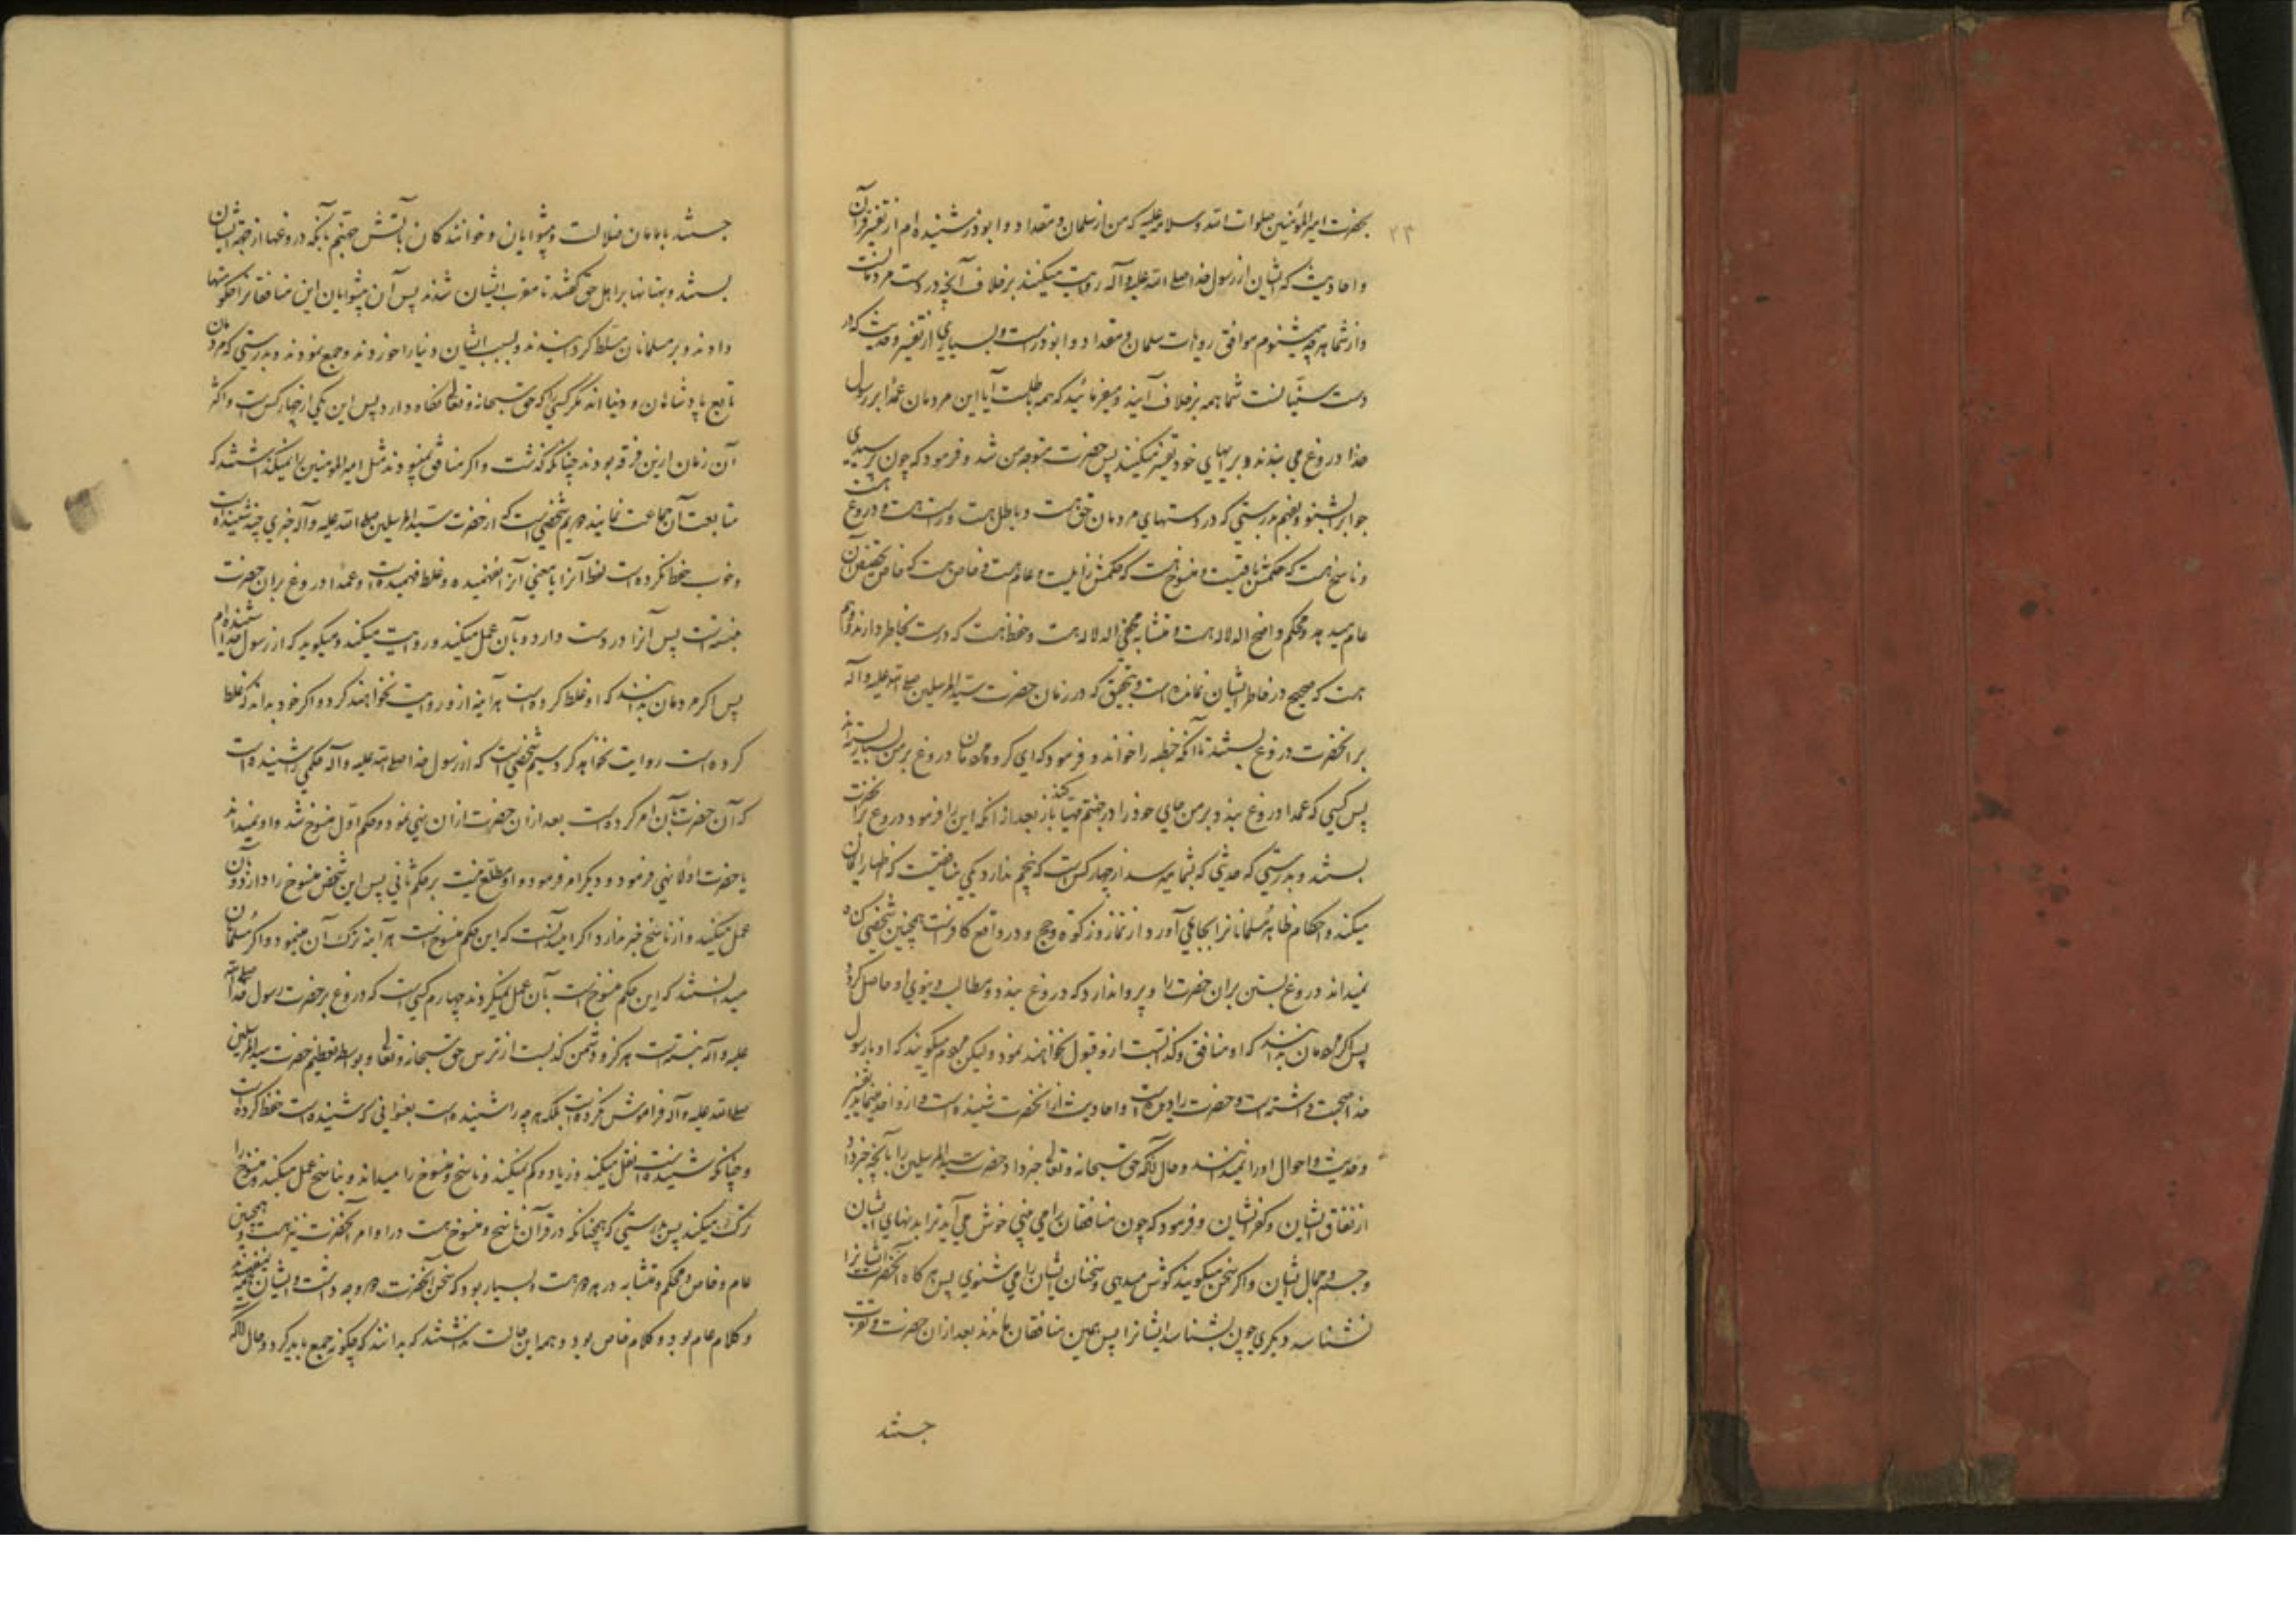 بحضرت امیرالمؤمنین صلوات الله وسلامه علیه که من از سلمان و مقداد و ابوذر شنیده ام از تفسیر قرآن
۲۳
و احادیث که ایشان از رسول خدا صلی الله علیه و آله روایت میکنند برخلاف آنچه در دست مردمانست
و از شما هرچه میشنوم موافق روایات سلمان و مقداد و ابوذر است و بسیاری از تفسیر و حدیث که در
دست سنیانست شما همه برخلاف آنید و میفرمائید که همه باطلست آیا این مردمان عمدا بر رسول
خدا دروغ می بندند و برایهای خود تفسیر میکنند پس حضرت متوجه من شد و فرمود که چون پرسیدی
جوابرا بشنو و بفهم بدرستی که در دستهای مردمان حق هست و باطل هست و راست هست و دروغ هست
و ناسخ هست که حکمش باقیست و منسوخ هست که حکمش زایلست و عام هست و خاص هست که خاص تخصیص آن
عام میدهد و محکم واضح الدلاله هست و متشابه مخفی الدلاله هست و حفظ هست که درست بخاطر دارند و وهم
هست که صحیح در خاطر ایشان نمانده است و بتحقیق که در زمان حضرت سید المرسلین صلی الله علیه و آله
بر آنحضرت دروغ بستند تا آنکه خطبه را خواند و فرمود که ای گروه مردمان دروغ بر من بسیار بسته اند
پس کسی که عمدا دروغ بندد بر من جای خود را در جهنم مهیا کند باز بعد از آنکه این را فرمود دروغ بر آنحضرت
بستند و بدرستی که حدیثی که بشما میرسد از چهار کس است که پنجم ندارد یکی منافقیست که اظهار ایمان
میکند و احکام ظاهر مسلمانانرا بجا می آورد از نماز و زکوة و حج و در واقع کافر است همچنین شخصی گناه
نمیداند دروغ بستن بر آن حضرت را و پروا ندارد که دروغ بندد و مطالب دنیوی او حاصل گردد
پس اگر مردمان بدانند که او منافق و کذابست از و قبول نخواهند نمود ولیکن مردم میگویند که او با رسول
خدا صحبت داشته است و حضرت را دیده است و احادیث از آنحضرت شنیده است و از و اخذ مینمایند تفسیر
و حدیث و احوال او را نمیدانند و حال آنکه حق سبحانه و تعالی خبر داد حضرت سید المرسلین را بآنچه خبر داد
از نفاق ایشان و کفر ایشان و فرمود که چون منافقان را می بینی خوش می آید ترا بدنهای ایشان
و جسم و جمال ایشان و اگر سخن میگویند گوش میدهی و سخنان ایشان را می شنوی پس هرگاه آنحضرت ایشانرا
نشناسد دیگری چون بشناسد ایشانرا پس همین منافقان ماندند بعد از آن حضرت و تقرب
جستند
جستند بامامان ضلالت و پیشوایان و خوانندگان بآتش جهنم بآنکه دروغها از جهة ایشان
بستند و بهتانها بر اهل حق گفتند تا مقرب ایشان شدند پس آن پیشوایان این منافقانرا حکومتها
دادند و بر مسلمانان مسلط گردانیدند و بسبب ایشان دنیا را خوردند و جمع نمودند و بدرستی که مردمان
تابع پادشاهان و دنیااند مگر کسی را که حق سبحانه و تعالی نگاه دارد پس این یکی از چهار کس است و اکثر
آن زمان ازین فرقه بودند چنانکه گذشت و اگر منافق نمیبودند مثل امیرالمؤمنین را نمیگذاشتند که
متابعت آن جماعت نمایند دویم شخصی است که از حضرت سید المرسلین صلی الله علیه و آله خبری چند شنیده است
و خوب حفظ نکرده است لفظ آنرا یا معنی آنرا نفهمیده و غلط فهمیده است و عمدا دروغ بر آن حضرت
نبسته است پس آنرا در دست دارد و بآن عمل میکند و روایت میکند و میگوید که از رسول خدا شنیده ام
پس اگر مردمان بدانند که او غلط کرده است هر آینه از و روایت نخواهند کرد و اگر خود بداند که غلط
کرده است روایت نخواهد کرد سیم شخصی است که از رسول خدا صلی الله علیه و آله حکمی را شنیده است
که آن حضرت بآن امر کرده است بعد از آن حضرت از آن نهی نمود و حکم اول منسوخ شد و او نمیداند
یا حضرت اولا نهی فرمود و دیگر امر فرمود و او مطلع نیست بر حکم ثانی پس این شخص منسوخ را دارد و بآن
عمل میکند و از ناسخ خبر ندارد اگر میدانست که این حکم منسوخ است هر آینه ترک آن مینمود و اگر مسلمانان
میدانستند که این حکم منسوخ است بآن عمل نمیکردند چهارم کسی است که دروغ بر حضرت رسول خدا صلی الله
علیه و آله نبسته است هرگز و دشمن کذبست از ترس حق سبحانه و تعالی و بواسطه تعظیم حضرت سید المرسلین
صلی الله علیه و آله فراموش نکرده است بلکه هرچه را شنیده است بعنوانی که شنیده است حفظ کرده است
و چنانکه شنیده است نقل میکند و زیاد و کم نمیکند و ناسخ و منسوخ را میداند و بناسخ عمل میکند و منسوخ را
ترک میکند پس بدرستی که همچنانکه در قرآن ناسخ و منسوخ هست در اوامر آنحضرت نیز هست و همچنین
عام و خاص و محکم و متشابه در هر دو هست و بسیار بود که سخن آنحضرت دو وجه داشت و ایشان نمیفهمیدند
و کلام عام بود و کلام خاص بود و همه این حالت نداشتند که بدانند که چگونه جمع باید کرد و حال آنکه